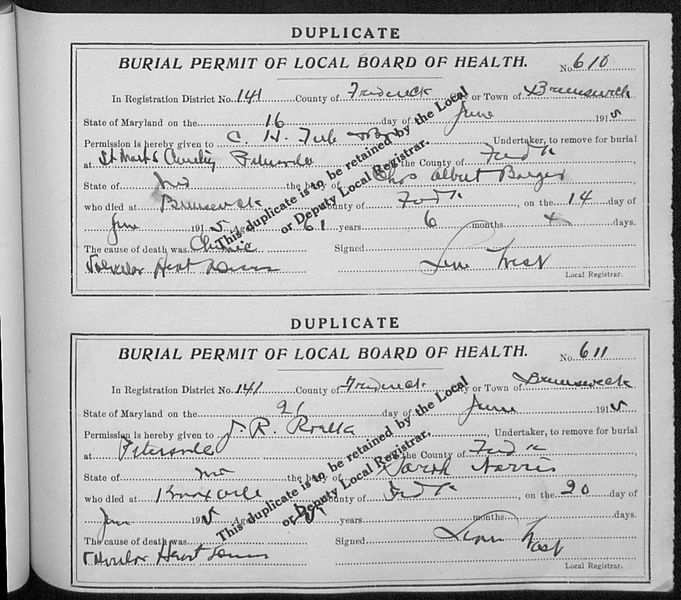 DUPLICATE
BURIAL PERMIT OF LOCAL BOARD OF HEALTH. No. 610
In Registration District No. 141 County of Frederick City or Town of Brunswick
State of Maryland on the 16 day of June 1915
Permission is hereby given to C. H. Undertaker, to remove for burial
at St Marks Petersville the County of Fredk
State of Md the body of Chas Albert Barger
who died at Brunswick County of Fredk, on the 14 day of
June 1915 Aged 61 years 6 months days.
The cause of death was Chronic Signed
Valvular Heart Leon West
Local Registrar.
This duplicate is to be retained by the Local
or Deputy Local Registrar.
DUPLICATE
BURIAL PERMIT OF LOCAL BOARD OF HEALTH. No. 611
In Registration District No. 141 County of Frederick City or Town of Brunswick
State of Maryland on the 21 day of June 1915
Permission is hereby given to J. R. Undertaker, to remove for burial
at Petersville the County of Fredk
State of Md the body of Sarah Norris
who died at Knoxville County of Fredk, on the 20 day of
June 1915 Aged years months days.
The cause of death was Signed Leon West
Valvular Heart
Local Registrar.
This duplicate is to be retained by the Local
or Deputy Local Registrar.